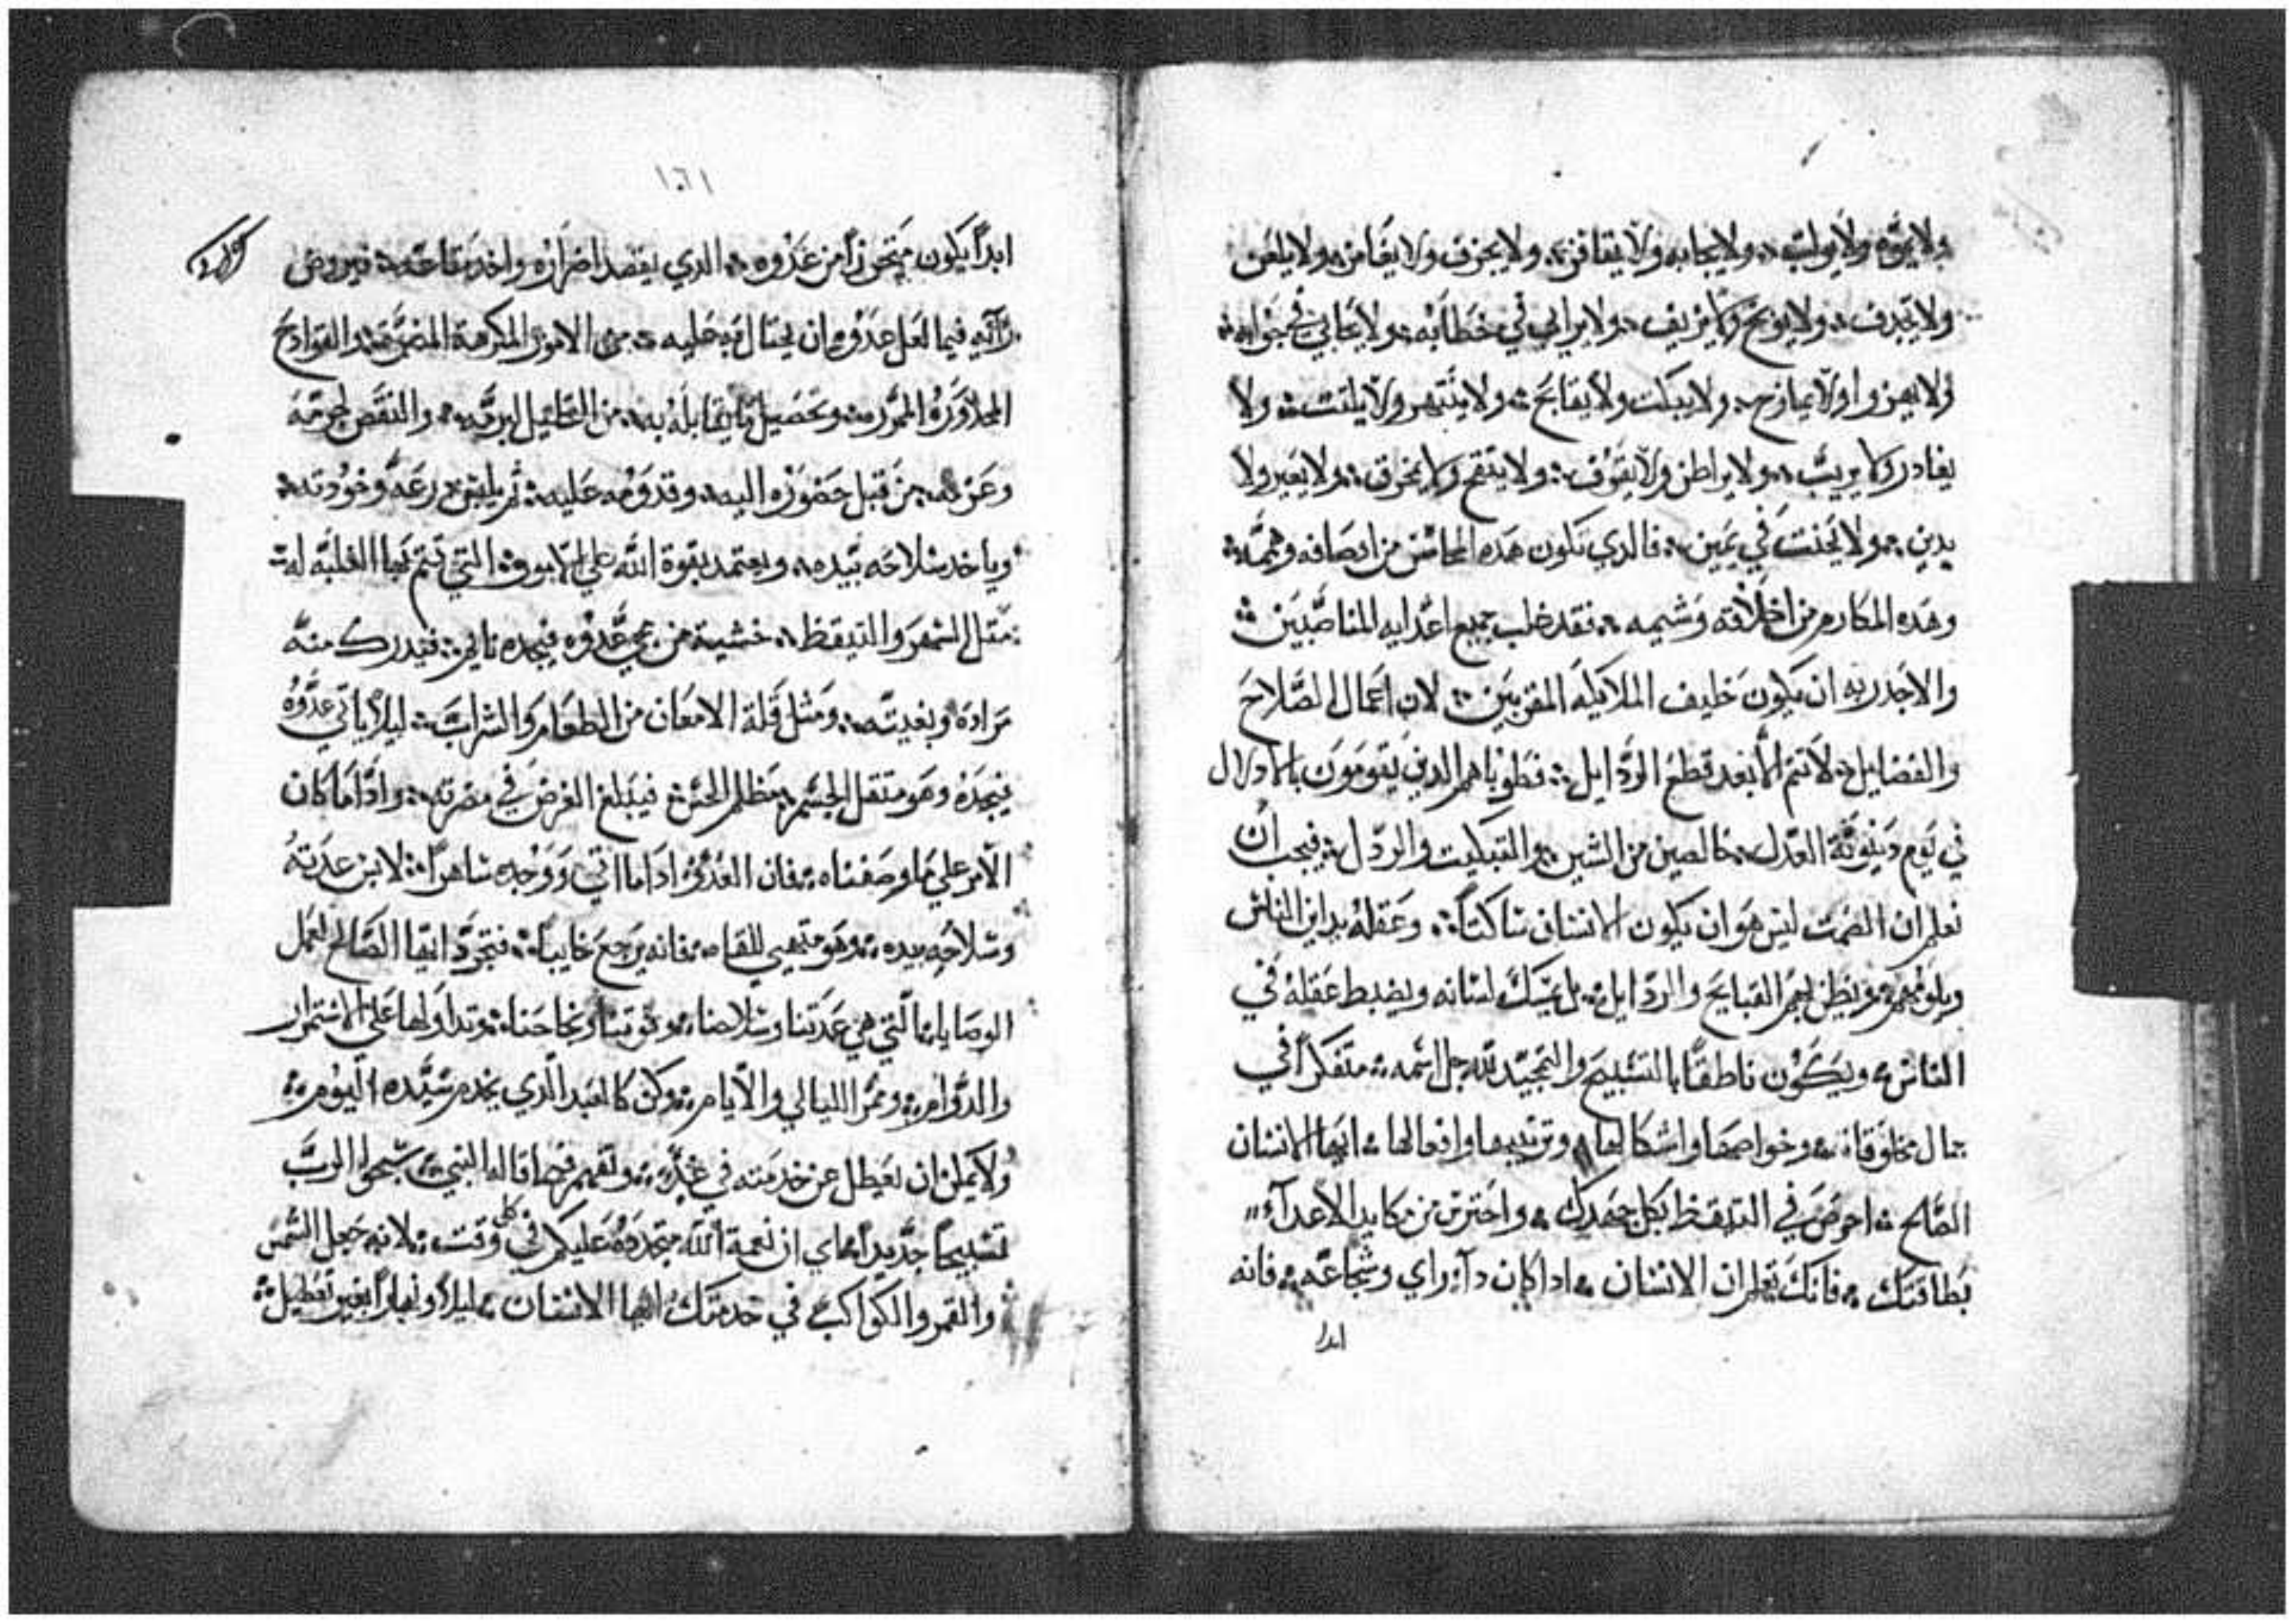 ولا يموه ولا يوارب ولا يجابه ولا يتقافز ولا يحزف ولا يغامز ولا يلعن
ولا يقدف ولا يوبخ ولا يزيف ولا يرابي في خطابه ولا يحابي في جوابه
ولا يهزوا ولا يمازح ولا يبكت ولا يقابح ولا ينتهر ولا يلتفت ولا
يغادر ولا يريب ولا يراطن ولا ولا يتقح ولا يخرق ولا يعير ولا
يدين ولا يحنت في يمين فالدي تكون هده المحاسن من اوصافه وهممه
وهده المكارم من اخلاقه وشيمه فقد غلب جميع اعدايه المناصبين
والاجدر به ان يكون خليف الملايكه المقربين لان اعمال الصلاح
والفضايل لا تتم الا بعد قطع الردايل فطوباهم الدين يقومون بالادلال
في يوم دينونة العدل خالصين من الشين والتبكيت والردل فيجب ان
نعلم ان الصمت ليس هو ان يكون الانسان ساكتاً وعقله يداين الناس
ويلومهم ويظن بهم القبايح والردايل بل يمسك لسانه ويضبط عقله في
الناس ويكون ناطقاً بالتسبيح والتمجيد لله جل اسمه متفكراً في
جمال مخلوقاته وخواصها واشكالها وترتيبها وافعالها ايها الانسان
الصالح احرص في التيقظ بكل جهدك واحترس من مكايد الاعدآء
بطاقتك فانك تعلم ان الانسان ادا كان دآ راي وشجاعه فانه
ابدا
١٠٦١
ابداً يكون متحرزاً من عدوه الدي يقصد اضراره واخد متاعه فيروض
رآيه فيما لعل عدوه ان يحتال به عليه من الامور المكرهة المضمة القوادح
المدررة وتحصيل ما يقابله به من التحليل لبرمه والنقض لجرمه
وعزمه من قبل حضوره اليه وقدومه عليه ثم يلبس درعه وخودته
وياخد سلاحه بيده ويعتمد بقوة الله على الامور التي تتم بها الغلبه له
مثل السهر والتيقظ خشية من مجي عدوه فيجده نايم فيدرك منه
مراده وبغيته ومثل قلة الامعان من الطعام والشراب ليلا ياتي عدوه
فيجده وهو متقل الجسم مظلم الحس فيبلغ الغرض في مضرته وادا ما كان
الامر على ما وصفناه فان العدو ادا ما اتي ووجده ساهراً لابس عدته
وسلاحه بيده وهو متهيي للقاه فانه يرجع خايباً فتجرد ايها الصالح لعمل
الوصايا التي هي عدتنا وسلاحنا وقوتنا ونجاحنا وتداولها على الاستمرار
والدوام وممر الليالي والايام وكن كالعبد الدي يخدم سيده اليوم
ولا يمل ان يعطل عن خدمته في غده وتفهم فيما قاله النبي سبحوا الرب
تسبيحاً جديداً اي ان نعمة الله متجددة عليكم في كل وقت لانه جعل الشمس
والقمر والكواكب في خدمتك ايها الانسان ليلاً ونهاراً بغير تعطيل